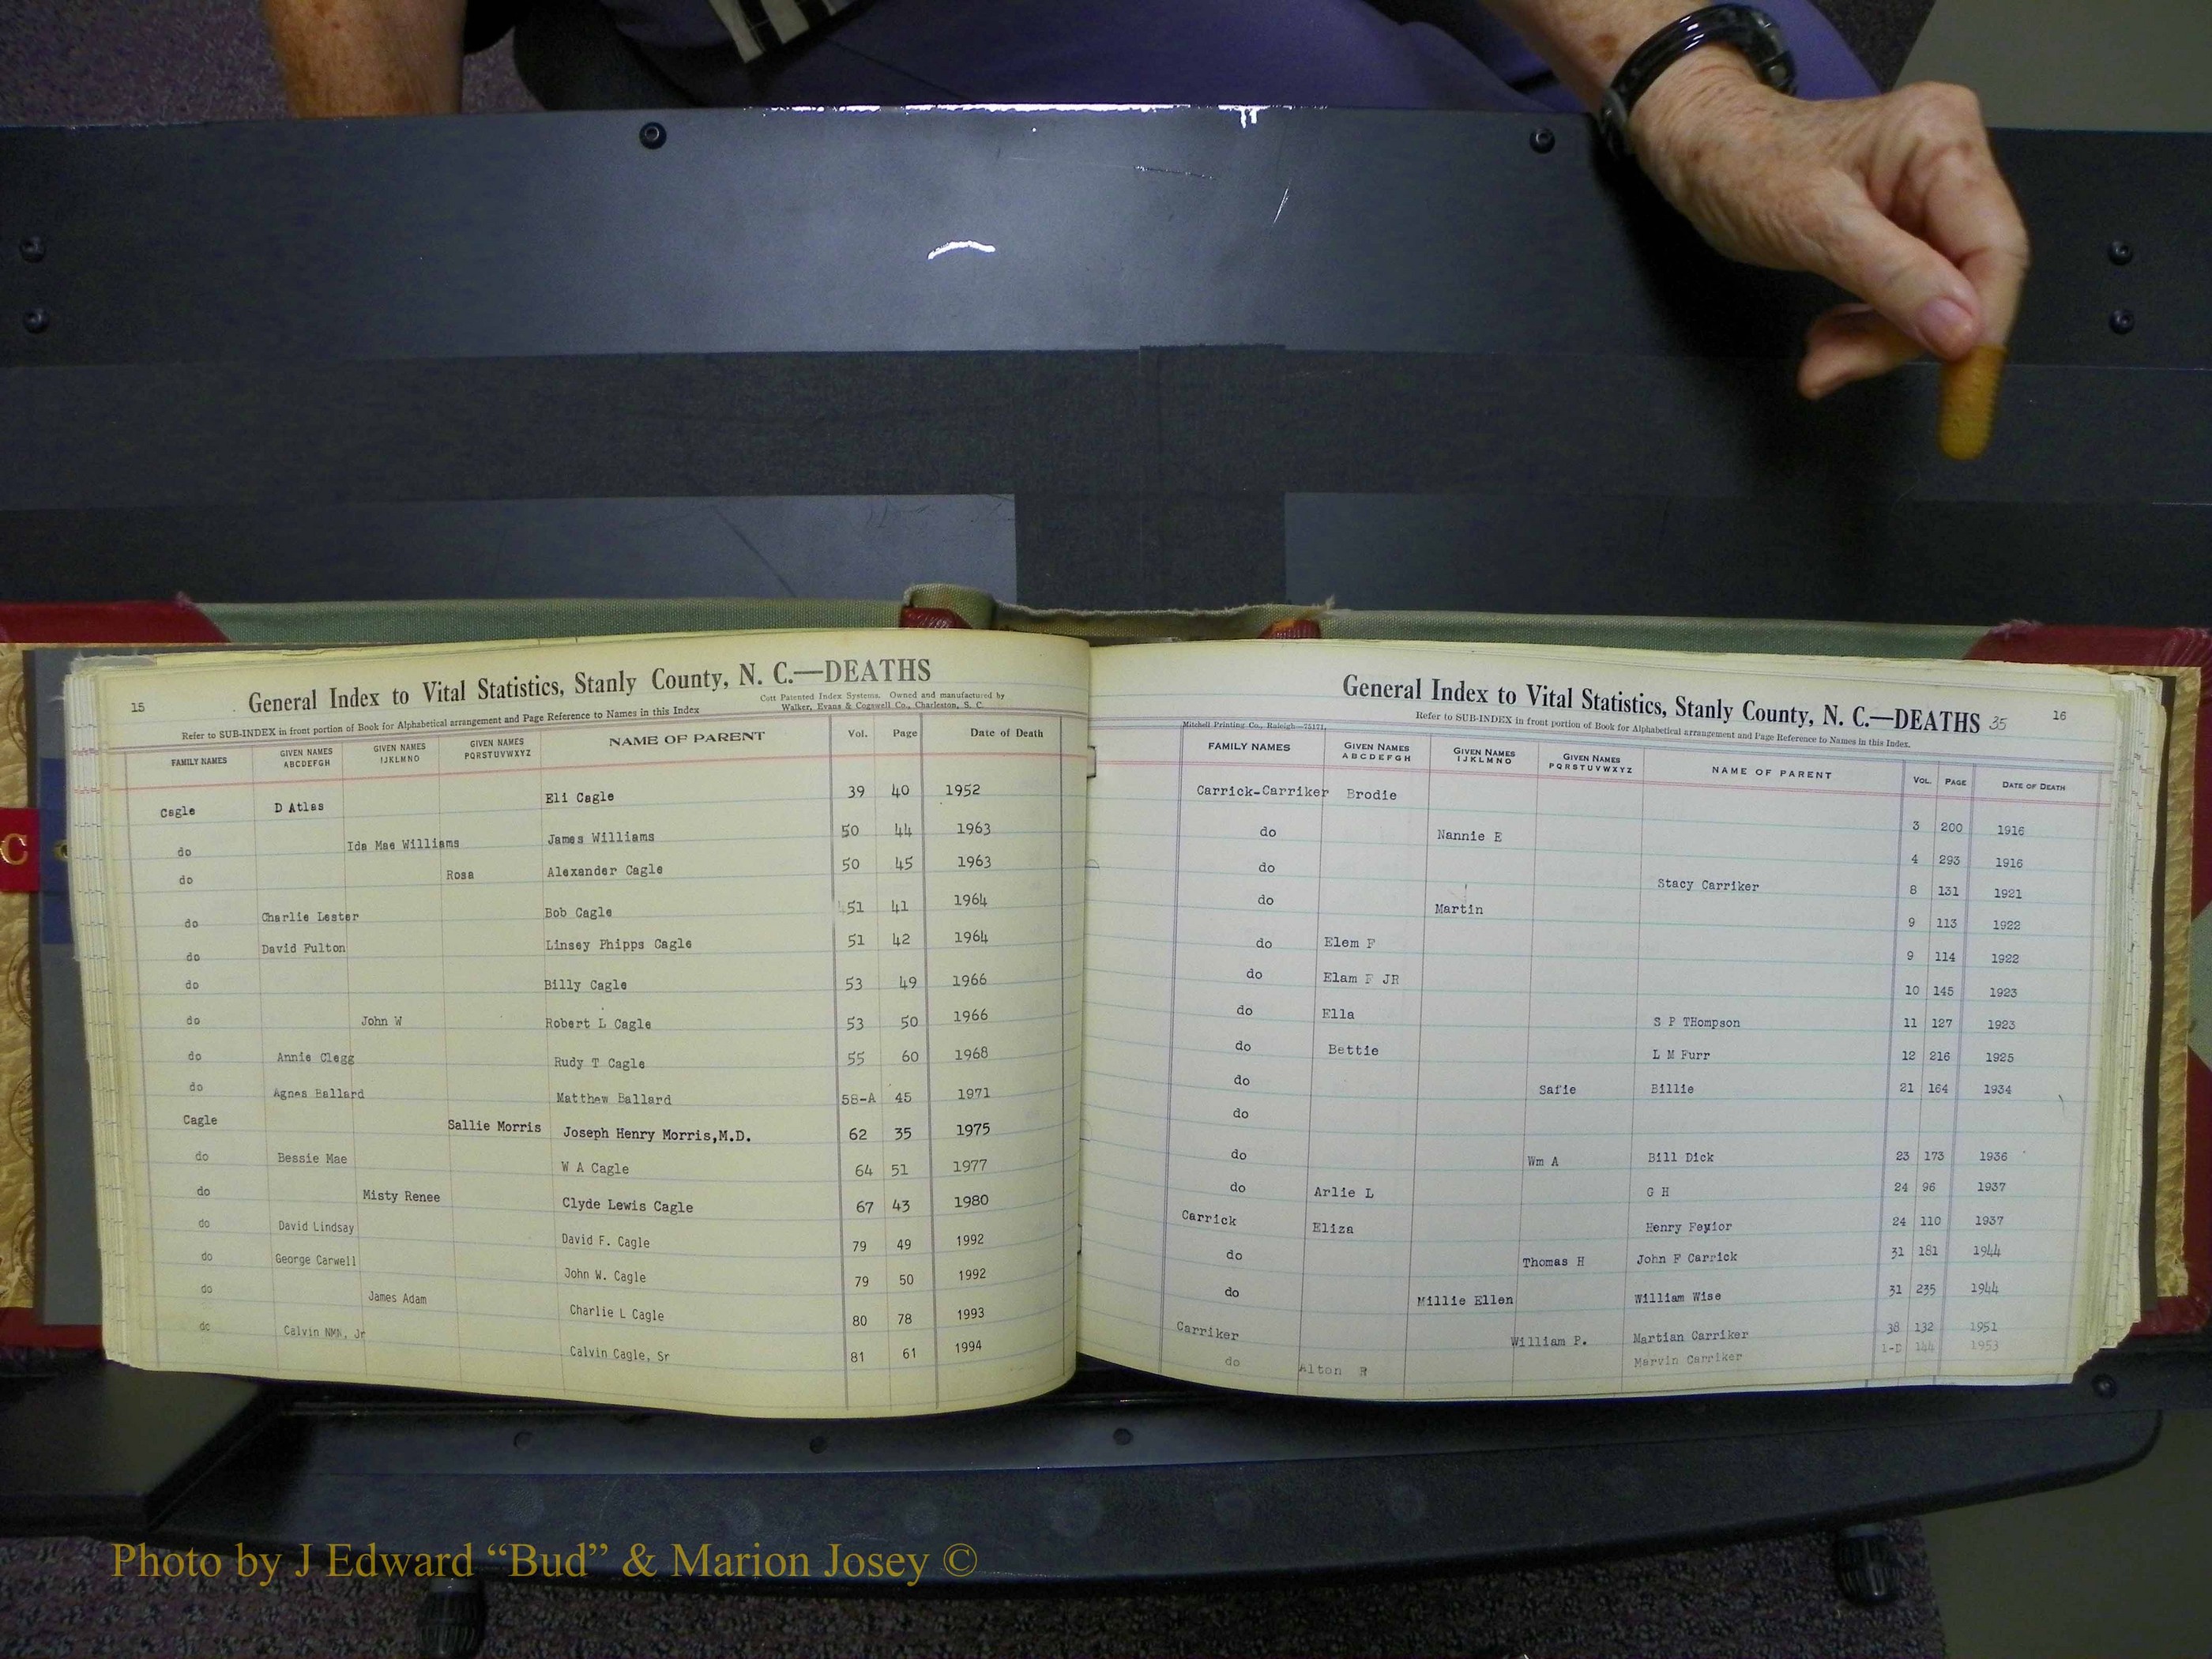 C
15
General Index to Vital Statistics, Stanly County, N. C.—DEATHS
Cott Patented Index Systems. Owned and manufactured by
Walker, Evans & Cogswell Co., Charleston, S. C.
Refer to SUB-INDEX in front portion of Book for Alphabetical arrangement and Page Reference to Names in this Index
FAMILY NAMES GIVEN NAMES ABCDEFGH GIVEN NAMES IJKLMNO GIVEN NAMES PQRSTUVWXYZ NAME OF PARENT Vol. Page Date of Death
Cagle D Atlas Eli Cagle 39 40 1952
do Ida Mae Williams James Williams 50 44 1963
do Rosa Alexander Cagle 50 45 1963
do Charlie Lester Bob Cagle 51 41 1964
do David Fulton Linsey Phipps Cagle 51 42 1964
do Billy Cagle 53 49 1966
do John W Robert L Cagle 53 50 1966
do Annie Clegg Rudy T Cagle 55 60 1968
do Agnes Ballard Matthew Ballard 58-A 45 1971
Cagle Sallie Morris Joseph Henry Morris,M.D. 62 35 1975
do Bessie Mae W A Cagle 64 51 1977
do Misty Renee Clyde Lewis Cagle 67 43 1980
do David Lindsay David F. Cagle 79 49 1992
do George Carwell John W. Cagle 79 50 1992
do James Adam Charlie L Cagle 80 78 1993
do Calvin NMN, Jr Calvin Cagle, Sr 81 61 1994
General Index to Vital Statistics, Stanly County, N. C.—DEATHS 35
16
Mitchell Printing Co., Raleigh—75171.
Refer to SUB-INDEX in front portion of Book for Alphabetical arrangement and Page Reference to Names in this Index.
FAMILY NAMES GIVEN NAMES ABCDEFGH GIVEN NAMES IJKLMNO GIVEN NAMES PQRSTUVWXYZ NAME OF PARENT VOL. PAGE DATE OF DEATH
Carrick-Carriker Brodie 3 200 1916
do Nannie E 4 293 1916
do Stacy Carriker 8 131 1921
do Martin 9 113 1922
do Elem F 9 114 1922
do Elam F JR 10 145 1923
do Ella S P THompson 11 127 1923
do Bettie L M Furr 12 216 1925
do Safie Billie 21 164 1934
do
do Wm A Bill Dick 23 173 1936
do Arlie L G H 24 96 1937
Carrick Eliza Henry Feyior 24 110 1937
do Thomas H John F Carrick 31 181 1944
do Millie Ellen William Wise 31 235 1944
Carriker William P. Martian Carriker 38 132 1951
do Alton R Marvin Carriker 1-D 144 1953
Photo by J Edward “Bud” & Marion Josey ©